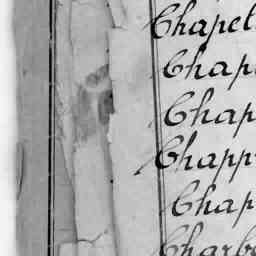 Chapel
Chap
Chap
Chapp
Chap
Charb